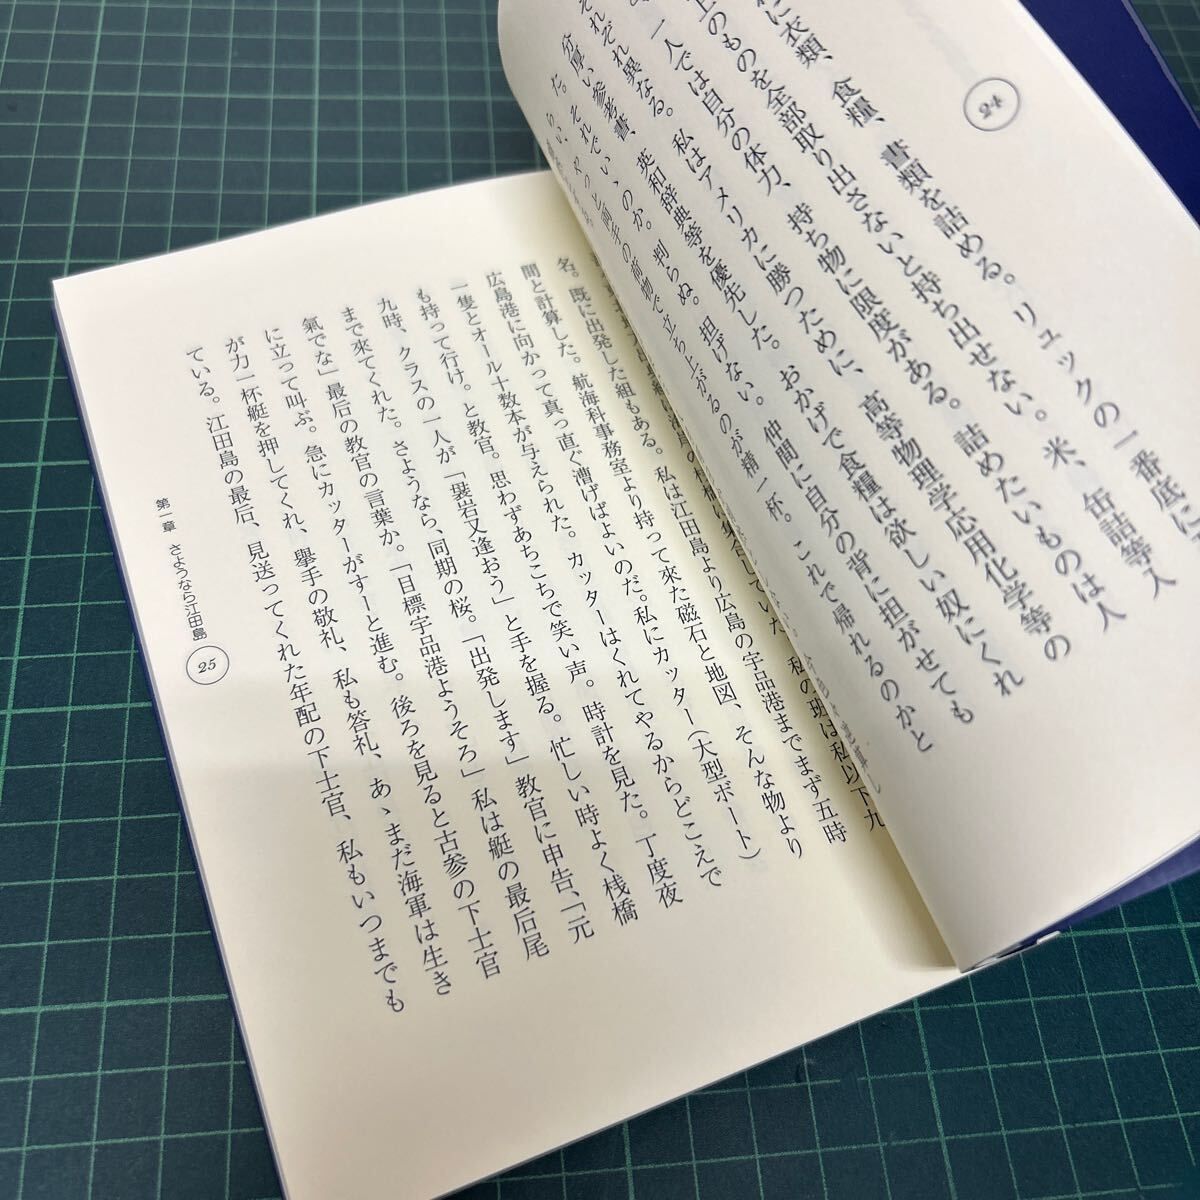 24
に衣類、食糧、書類を詰める。リュックの一番底に
上のものを全部取り出さないと持ち出せない。米、缶詰等人
一人では自分の体力、持ち物に限度がある。詰めたいものは人
それぞれ異なる。私はアメリカに勝つために、高等物理学応用化学等の
分厚い参考書、英和辞典等を優先した。おかげで食糧は欲しい奴にくれ
た。それでいいのか。判らぬ。担げない。仲間に自分の背に担がせても
らい、やっと両手の荷物で立ち上がるのが精一杯。これで帰れるのかと
していた。私の班は私以下九
名。既に出発した組もある。私は江田島より広島の宇品港までまず五時
間と計算した。航海科事務室より持って來た磁石と地図、そんな物より
広島港に向かって真っ直ぐ漕げばよいのだ。私にカッター（大型ボート）
一隻とオール十数本が与えられた。カッターはくれてやるからどこえで
も持って行け。と教官。思わずあちこちで笑い声。時計を見た。丁度夜
九時、クラスの一人が「裴岩又逢おう」と手を握る。忙しい時よく桟橋
まで來てくれた。さようなら、同期の桜。「出発します」教官に申告、「元
氣でな」最后の教官の言葉か。「目標宇品港ようそろ」私は艇の最后尾
に立って叫ぶ。急にカッターがすーと進む。後ろを見ると古参の下士官
が力一杯艇を押してくれ、擧手の敬礼、私も答礼、あゝまだ海軍は生き
ている。江田島の最后、見送ってくれた年配の下士官、私もいつまでも
第一章 さようなら江田島
25